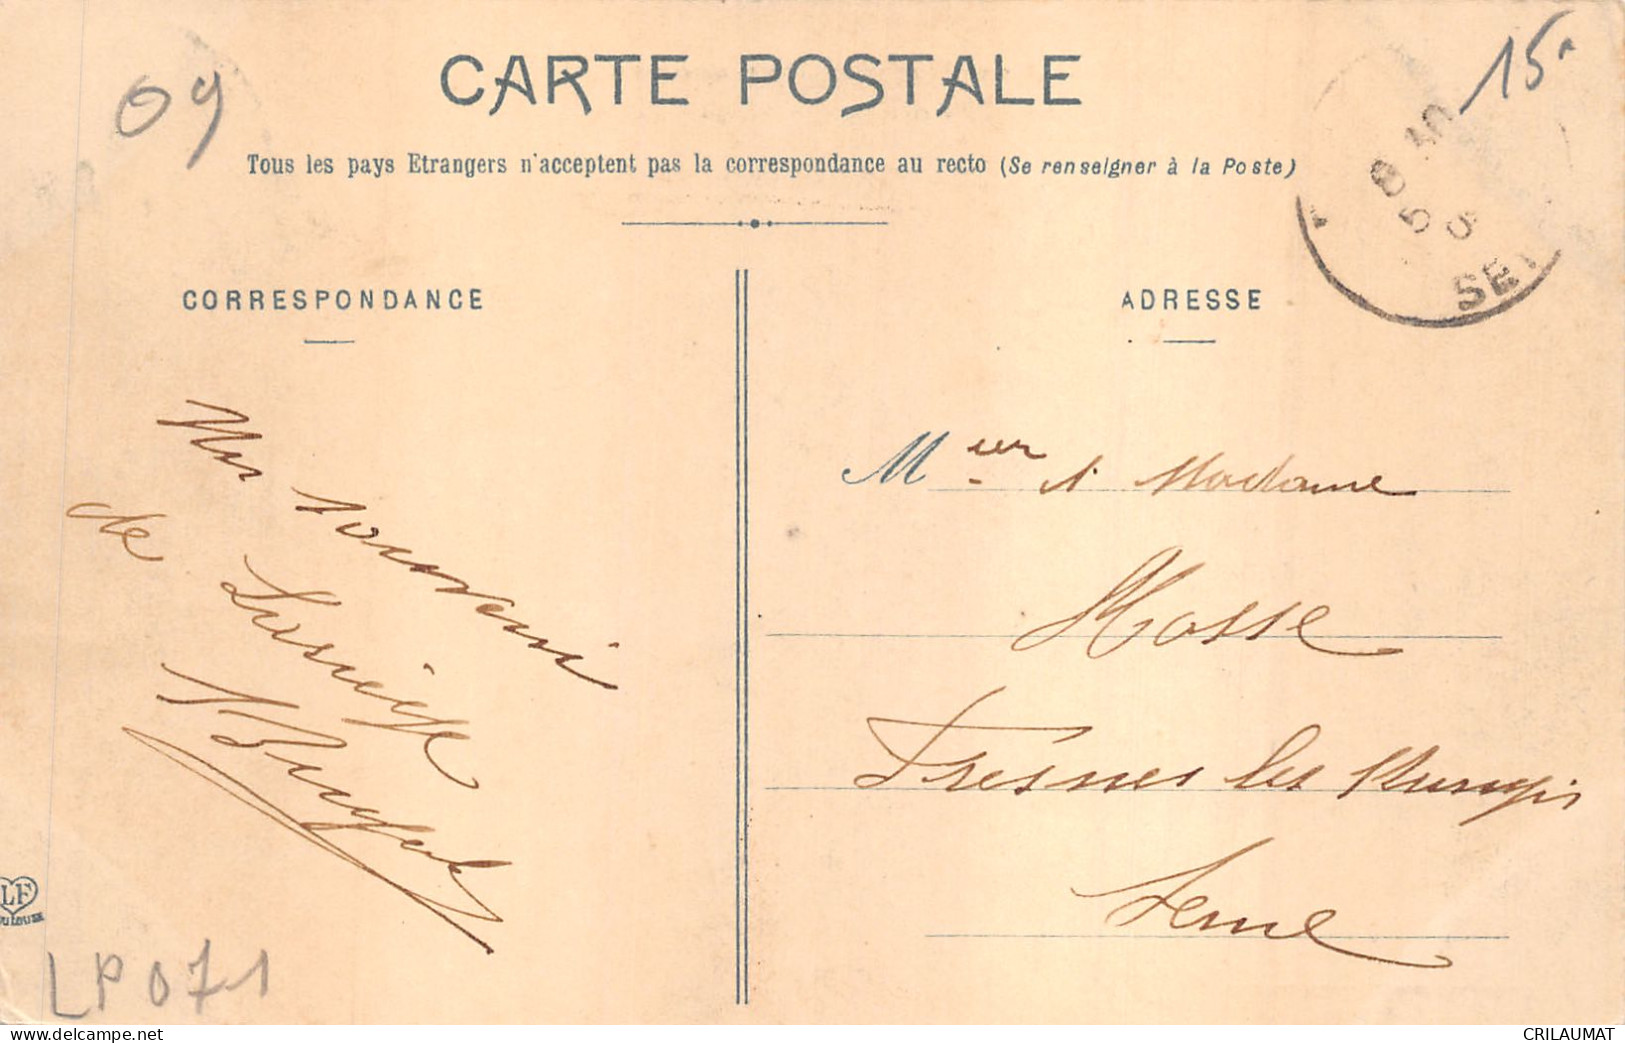 09
15
CARTE POSTALE
Tous les pays Etrangers n'acceptent pas la correspondance au recto (Se renseigner à la Poste)
CORRESPONDANCE
ADRESSE
SEI
Un souvenir
de
Meur & Madame
Mosse
Fresnes les Rungis
Seine
LF
LP071
www.delcampe.net
CRILAUMAT